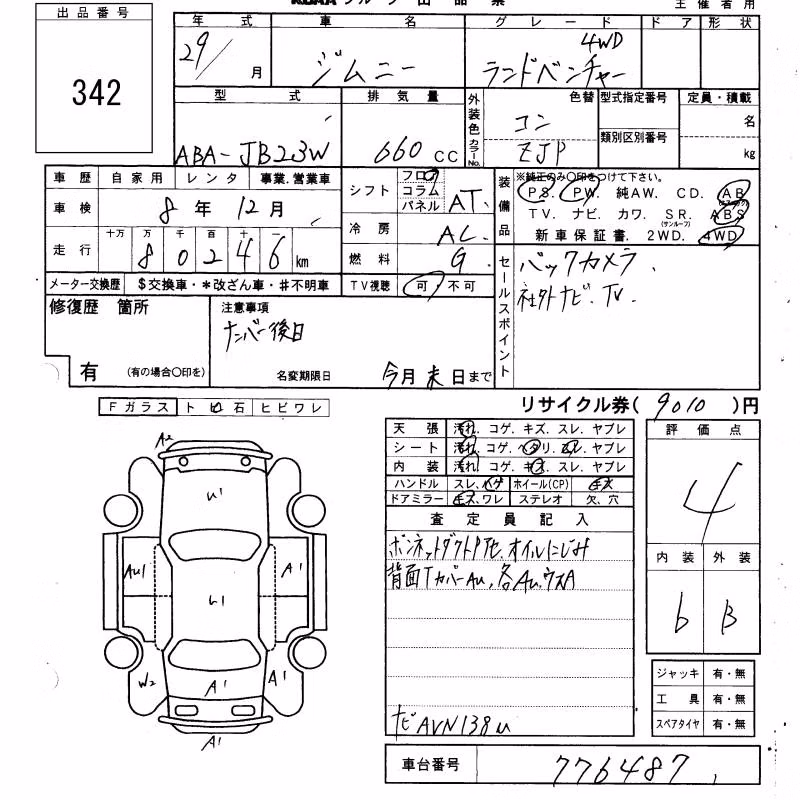 出品番号
342
年式 車名 グレード ドア 形状
29/ 月 ジムニー 4WD
ランドベンチャー
型式 排気量 外装色 カラーNo. 色替 型式指定番号 定員・積載
コン 名
ABA-JB23W 660 CC ZJP 類別区別番号 kg
車歴 自家用 レンタ 事業.営業車
車検 8年 12月
走行 十万 万 千 百 十 一
80246 km
メーター交換歴 $交換車・*改ざん車・#不明車
シフト フロア コラム パネル AT.
冷房 AC
燃料 G
TV視聴 可・不可
装備品 ※純正のみ〇印をつけて下さい。
PS. PW. 純AW. CD. AB
TV. ナビ. カワ. SR. ABS
(サンルーフ)
新車保証書. 2WD. 4WD
セールスポイント
バックカメラ
社外ナビ.TV.
修復歴 箇所
有 (有の場合〇印を)
注意事項
ナンバー後日
名変期限日 今月末日まで
リサイクル券( 9010 )円
Fガラス トビ石 ヒビワレ
天張 汚れ. コゲ. キズ. スレ. ヤブレ
シート 汚れ. コゲ. ヘタリ. スレ. ヤブレ
内装 汚れ. コゲ. キズ. スレ. ヤブレ
ハンドル スレ. ハゲ ホイール(CP) キズ
ドアミラー キズ. ワレ ステレオ 欠. 穴
査定員記入
ボンネットダクトPモ. オイルにじみ
背面TカバーAu, 各Au, ウスA
ナビAVN138M
評価点
4
内装 外装
b B
ジャッキ 有・無
工具 有・無
スペアタイヤ 有・無
車台番号 776487
A2
U1
AU1
A1
U1
W2
A1
A1
A1